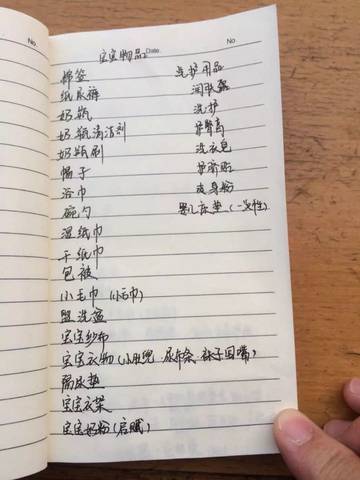 No.
Date
No
宝宝物品
棉签 洗护用品
纸尿裤 润肤露
奶瓶 洗护
奶瓶清洁剂 护臀膏
奶瓶刷 洗衣皂
帽子 护脐贴
浴巾 爽身粉
碗勺 婴儿床垫(一次性)
湿纸巾
干纸巾
包被
小毛巾 (小方巾)
盥洗盆
宝宝纱布
宝宝衣物(小肚兜 尿布 袜子 口嘴)
隔尿垫
宝宝衣架
宝宝奶粉(启赋)